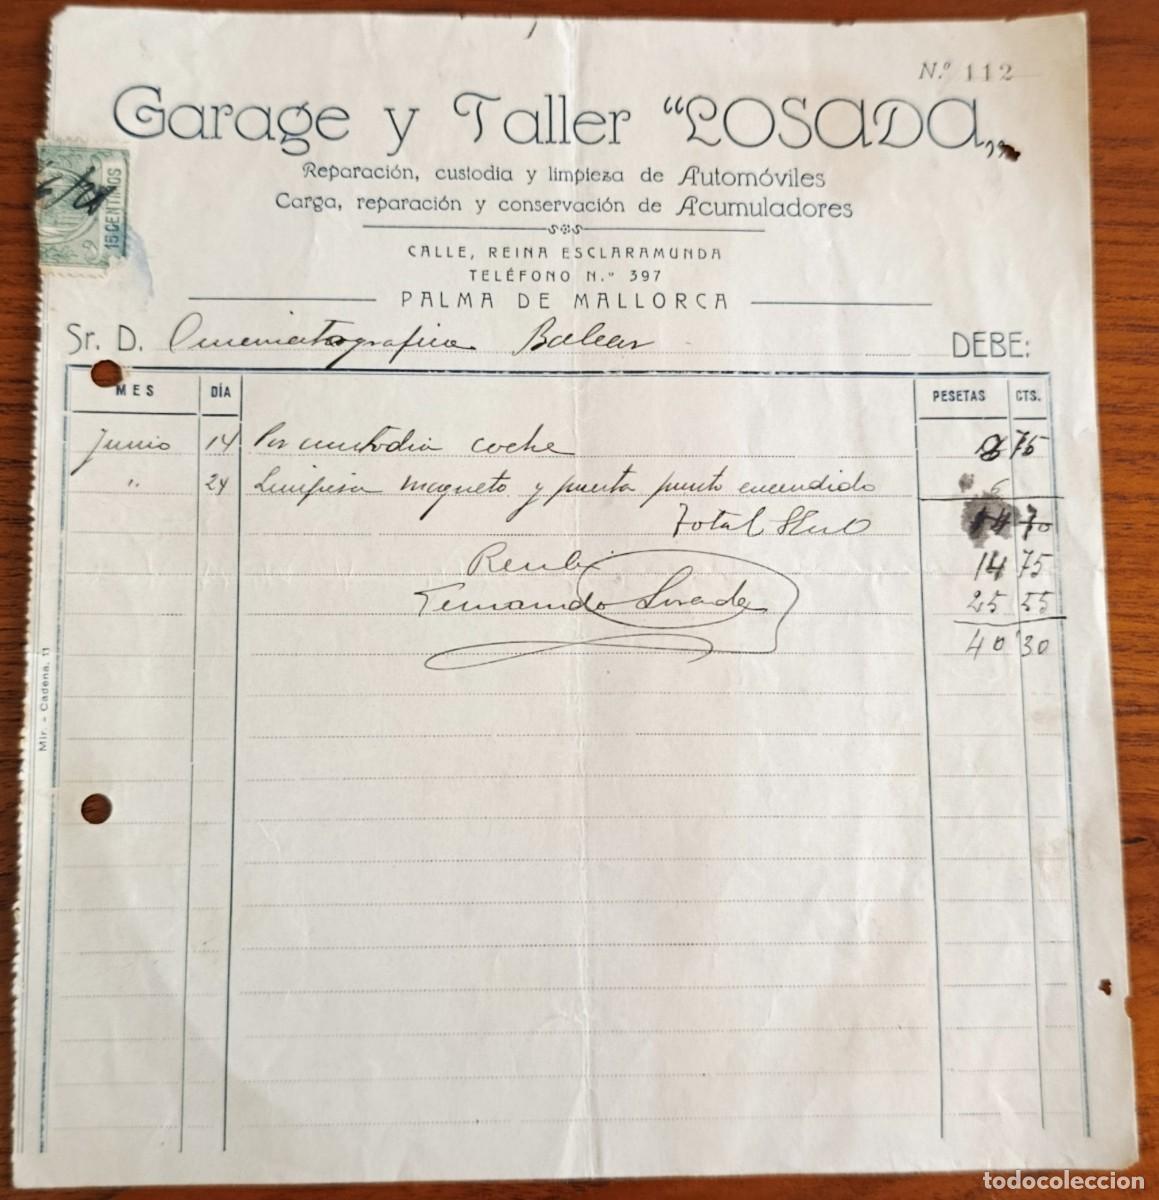 N.º 112
Garage y Taller "LOSADA"
Reparación, custodia y limpieza de Automóviles
Carga, reparación y conservación de Acumuladores
CALLE, REINA ESCLARAMUNDA
TELÉFONO N.º 397
PALMA DE MALLORCA
15 CENTIMOS
Sr. D. Cinematografica Balear DEBE:
MES DÍA PESETAS CTS.
Junio 14 Por custodia coche 75
" 24 Limpiesa magneto y puesta punto encendido 6
Total 70
Recibi 14 75
Fernando Losada 25 55
40 30
Mir. - Cadena, 11
todocoleccion